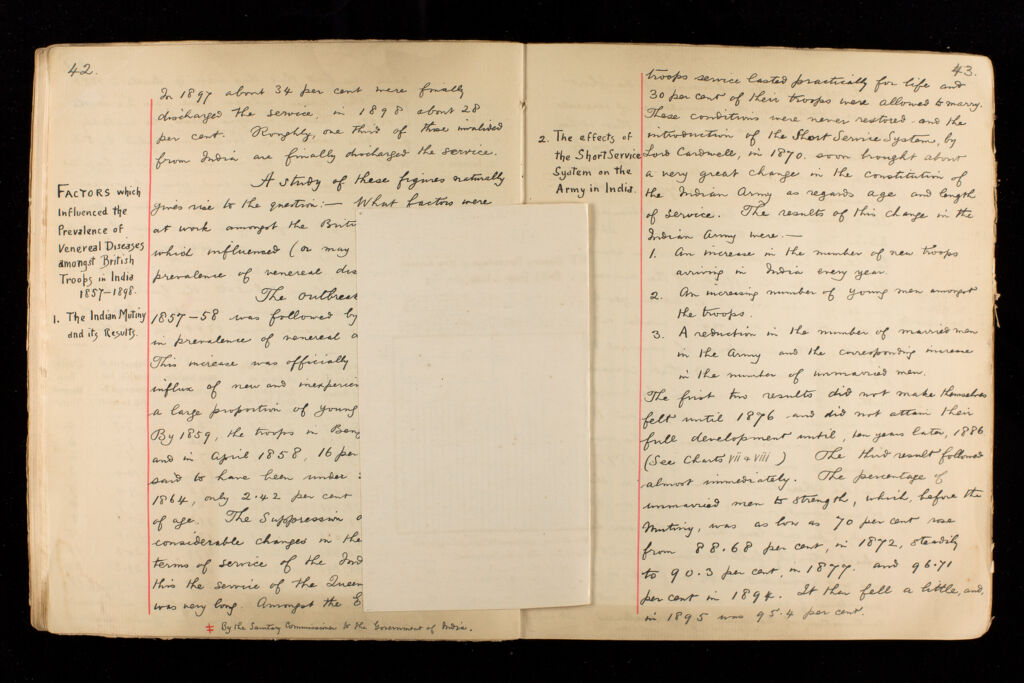 42.
In 1897 about 34 per cent were finally
discharged the service, in 1898 about 28
per cent. Roughly, one third of those invalided
from India are finally discharged the service.
A study of these figures naturally
gives rise to the question:— What factors were
at work amongst the Briti
which influenced (or may
prevalence of venereal dis
The outbreak
1857-58 was followed by
in prevalence of venereal
This increase was officially
influx of new and inexperien
a large proportion of young
By 1859, the troops in Beng
and in April 1858, 16 per
said to have been under
1864, only 2.42 per cent
of age. The Suppression
considerable changes in the
terms of service of the Ind
this the service of the Queen
was very long. Amongst the E
FACTORS which
Influenced the
Prevalence of
Venereal Diseases
amongst British
Troops in India
1857-1898.
1. The Indian Mutiny
and its Results.
‡ By the Sanitary Commissioner to the Government of India.
43.
troops service lasted practically for life and
30 per cent of their troops were allowed to marry.
These conditions were never restored and the
introduction of the Short Service System, by
Lord Cardwell, in 1870. soon brought about
a very great change in the constitution of
the Indian Army as regards age and length
of service. The results of this change in the
Indian Army were:—
1. An increase in the number of new troops
arriving in India every year.
2. An increasing number of young men amongst
the troops.
3. A reduction in the number of married men
in the Army and the corresponding increase
in the number of unmarried men.
The first two results did not make themselves
felt until 1876 and did not attain their
full development until, ten years later, 1886
(See Charts VII & VIII) The third result followed
almost immediately. The percentage of
unmarried men to strength, which, before the
Mutiny, was as low as 70 per cent rose
from 88.68 per cent, in 1872, steadily
to 90.3 per cent, in 1877. and 96.71
per cent in 1894. It then fell a little, and,
in 1895 was 95.4 per cent.
2. The effects of
the Short Service
System on the
Army in India.